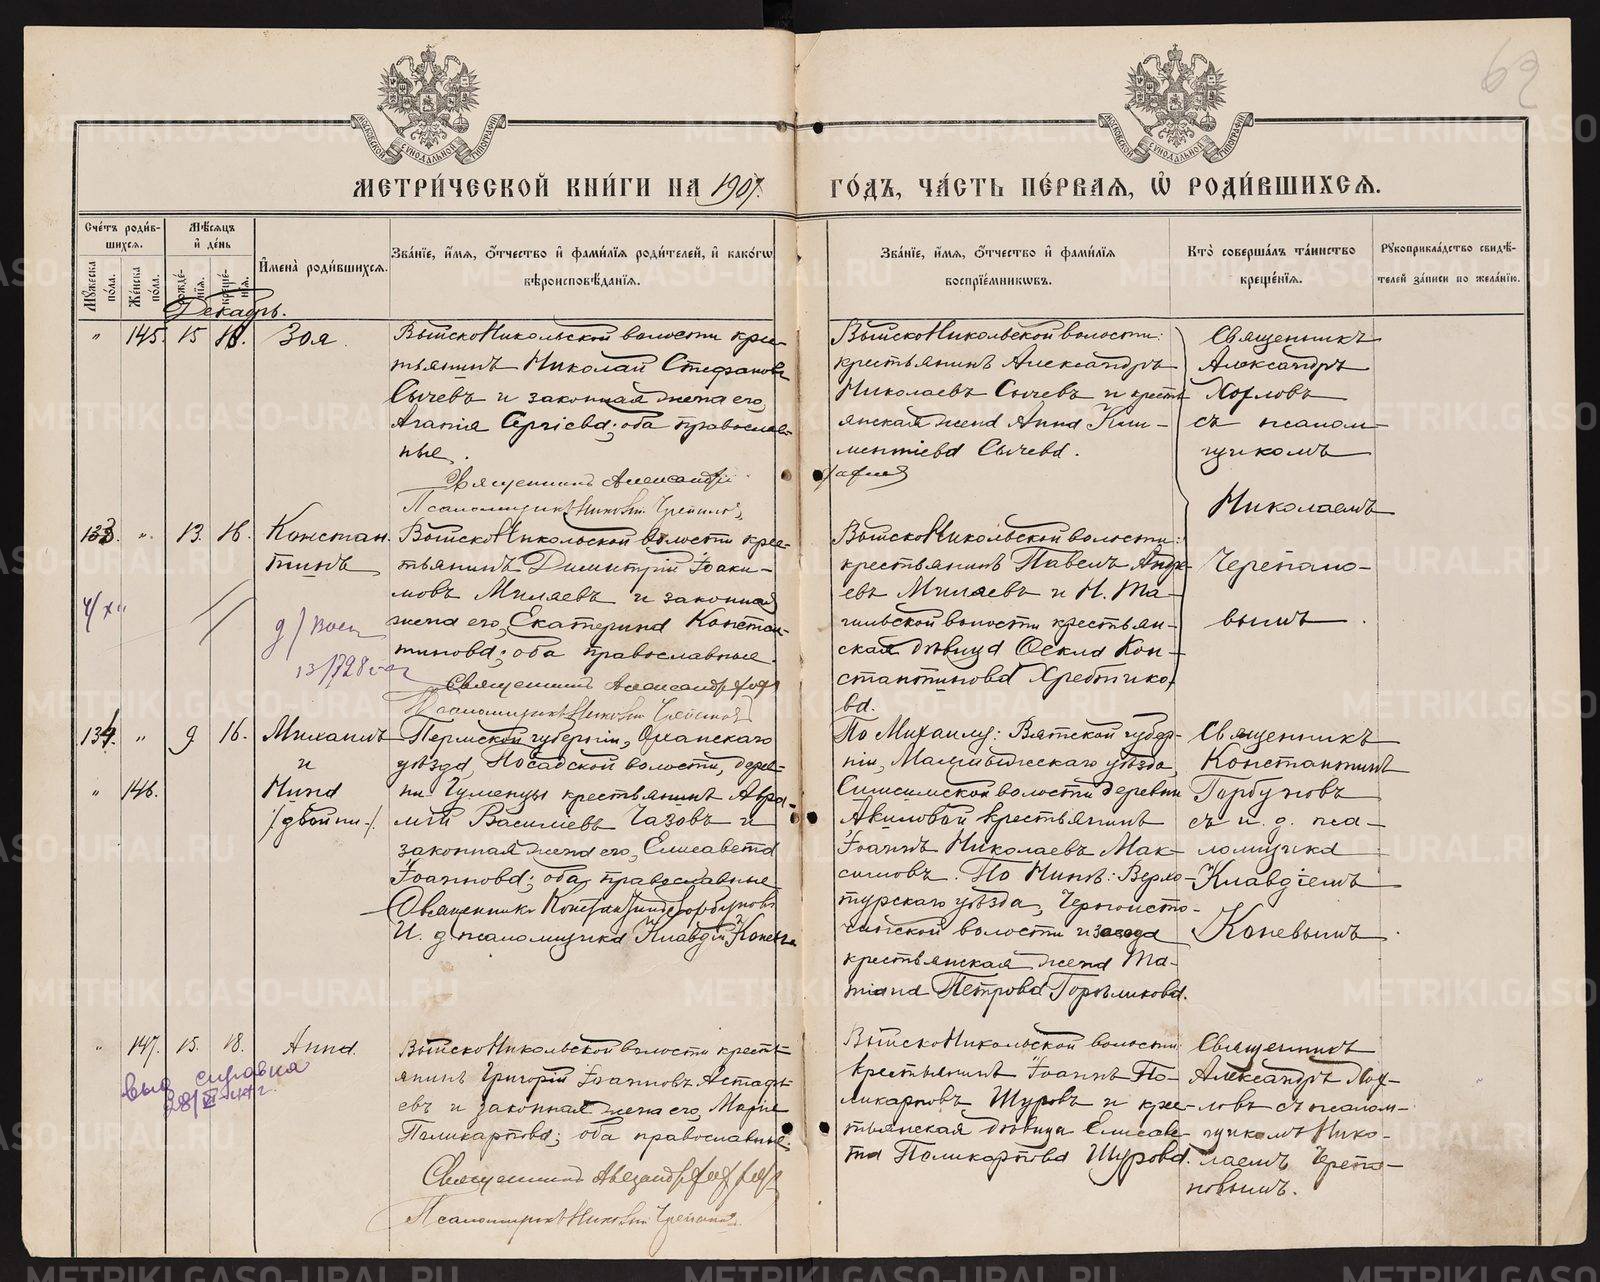 69
МОСКОВСКОЙ СѴНОДАЛЬНОЙ ТИПОГРАФІИ
МОСКОВСКОЙ СѴНОДАЛЬНОЙ ТИПОГРАФІИ
МЕТРИ́ЧЕСКОЙ КНИ́ГИ НА 1907.
ГО́ДЪ, ЧА́СТЬ ПЕ́РВАѦ, Ѡ҆ РОДИ́ВШИХСѦ.
Сче́тъ роди́в-
шихсѧ.
Мꙋ́жеска по́ла.
Же́нска по́ла.
Мѣ́сѧцъ
и҆ де́нь
рожде́нїѧ.
креще́нїѧ.
И҆мена̀ роди́вшихсѧ.
Зва́нїе, и҆́мѧ, ѻ҆́тчество и҆ фами́лїѧ роди́телей, и҆ како́гѡ
вѣроисповѣ́данїѧ.
Зва́нїе, и҆́мѧ, ѻ҆́тчество и҆ фами́лїѧ
воспрїе́мникѡвъ.
Кто̀ соверша́лъ та́инство
креще́нїѧ.
Рꙋкоприкла́дство свидѣ́-
телей за́писи по жела́нїю.
Декабрь.
" 145. 15 18. Зоя.
ВыйскоНикольской волости кре-
тьянинъ Николай Стефановъ
Сычевъ и законная жена его,
Агапія Сергіева; оба православ-
ные.
Священникъ Александръ
Псаломщикъ Николай Черепановъ
ВыйскоНикольской волости:
крестьянинъ Александръ
Николаевъ Сычевъ и кресть-
янская жена Анна Кли-
ментіева Сычева.
Священникъ
Александръ
Хохловъ
съ псалом-
щикомъ
Николаемъ
Черепано-
вымъ.
133. " 13. 16. Констан-
тинъ
ВыйскоНикольской волости кре-
тьянинъ Димитрій Іоаки-
мовъ Миляевъ и законная
жена его, Екатерина Констан-
тинова; оба православные.
Священникъ Александръ Хохловъ
Псаломщикъ Николай Черепановъ
ВыйскоНикольской волости:
крестьянинъ Павелъ Андре-
евъ Миляевъ и Н. Та-
гильской волости крестьян-
ская дѣвица Ѳекла Кон-
стантинова Хребтико-
ва.
134. " 9 16. Михаилъ
и
" 146. Нина
/двойни/.
Пермской губерніи, Оханскаго
уѣзда, Посадской волости, дерев-
ни Чуменцы крестьянинъ Авра-
мій Василіевъ Чазовъ и
законная жена его, Елисавета
Іоаннова; оба православные
Священникъ Константинъ Горбуновъ
И. д. псаломщика Клавдій Коневъ
По Михаилу: Вятской губер-
ніи, Малмыжскаго уѣзда,
волости деревни
Акиловой крестьянинъ
Іоаннъ Николаевъ Мак-
симовъ. По Нинѣ: Верхо-
турскаго уѣзда, Черноисто-
чинской волости и завода
крестьянская жена Та-
тіана Петрова Горѣликова.
Священникъ
Константинъ
Горбуновъ
съ и. д. пса-
ломщика
Клавдіемъ
Коневымъ.
" 147. 15. 18. Анна.
выд справка
ВыйскоНикольской волости кресть-
янинъ Григорій Іоанновъ Астафь-
евъ и законная жена его, Марія
Поликарпова; оба православные.
Священникъ Александръ Хохловъ
Псаломщикъ Николай Черепановъ
ВыйскоНикольской волости:
крестьянинъ Іоаннъ По-
ликарповъ Шуровъ и кре-
тьянская дѣвица Елисаве-
та Поликарпова Шурова.
Священникъ
Александръ Хох-
ловъ съ псалом-
щикомъ Нико-
лаемъ Черепа-
новымъ.
METRIKI.GASO-URAL.RU